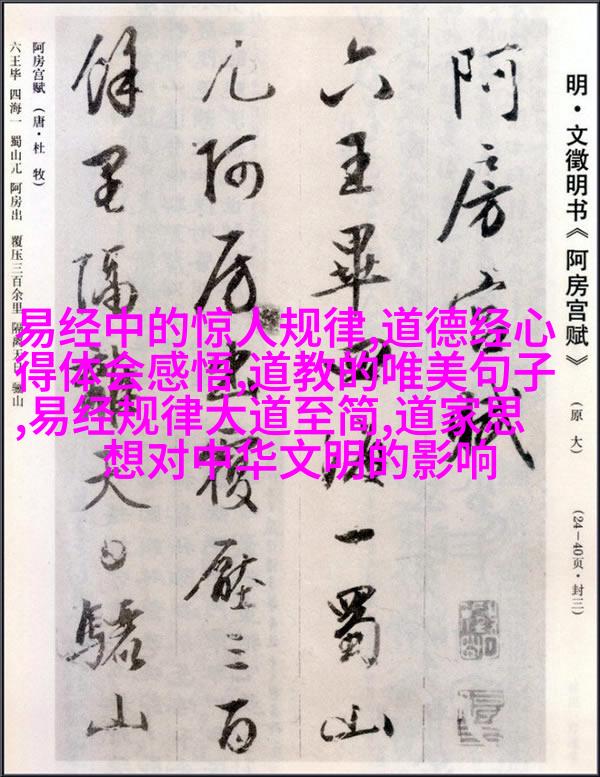 明·文徵明书《阿房宫赋》
（原大）
（24—40页·封三）
阿房宫赋
六王畢四海一蜀山
兀阿房出覆壓三百
餘里隔離天日驪山
阿房宫赋（唐·杜牧）
六王毕 四海一 蜀山兀 阿房出 覆压三百余里 隔离天日 骊山
易经中的惊人规律,道德经心
得体会感悟,道教的唯美句子
,易经规律大道至简,道家思
想对中华文明的影响